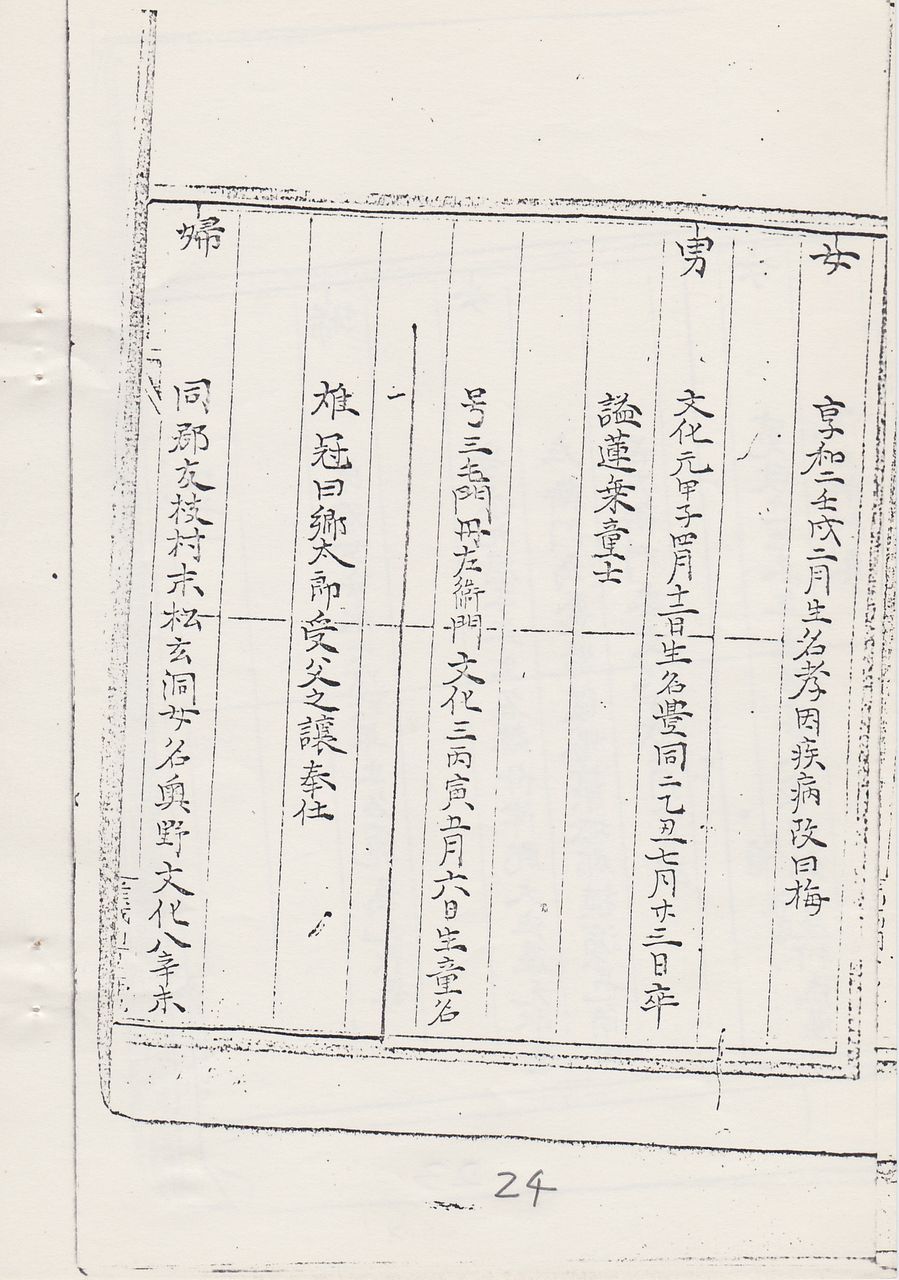 女
享和二壬戌二月生名孝因疾病改曰梅
男
文化元甲子四月十二日生名豊同二乙丑七月廿三日卒
謚蓮乗童士
文化三丙寅五月六日生童名
雄冠曰郷太郎受父之譲奉仕
婦
同郡友枝村末松玄洞女名奥野文化八辛未
24